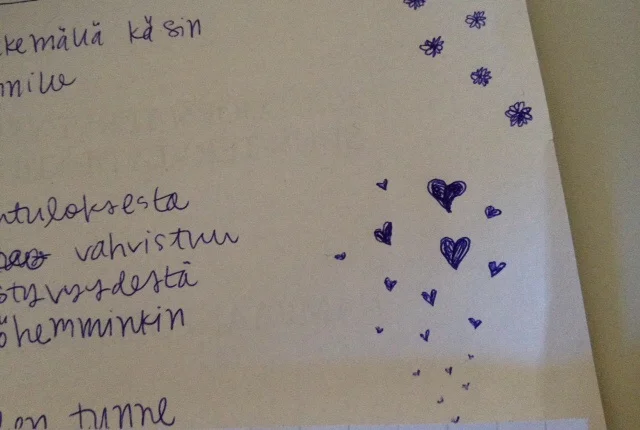 kemällä käsin
ntuloksesta
vahvistuu
styvyydestä
öhemminkin
on tunne